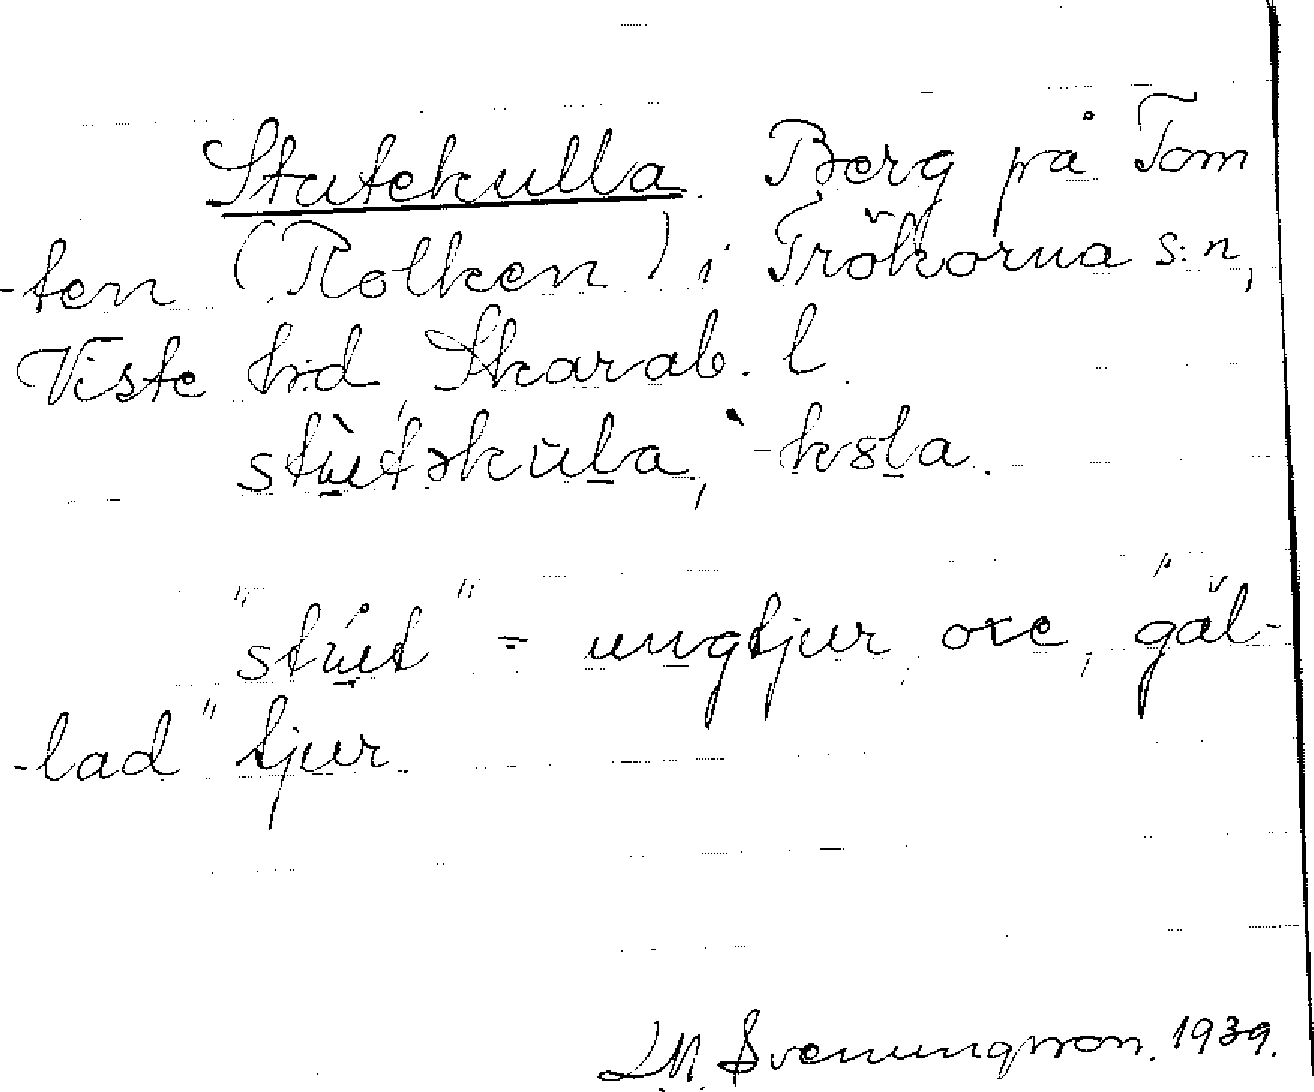 Stutekulla. Berg på Tom
-ten (Rolken) i Trökörna s:n,
Viste hd, Skarab. l.
"stut" = ungtjur, oxe, "gäl-
-lad" tjur.
LM. Svenungsson. 1939.